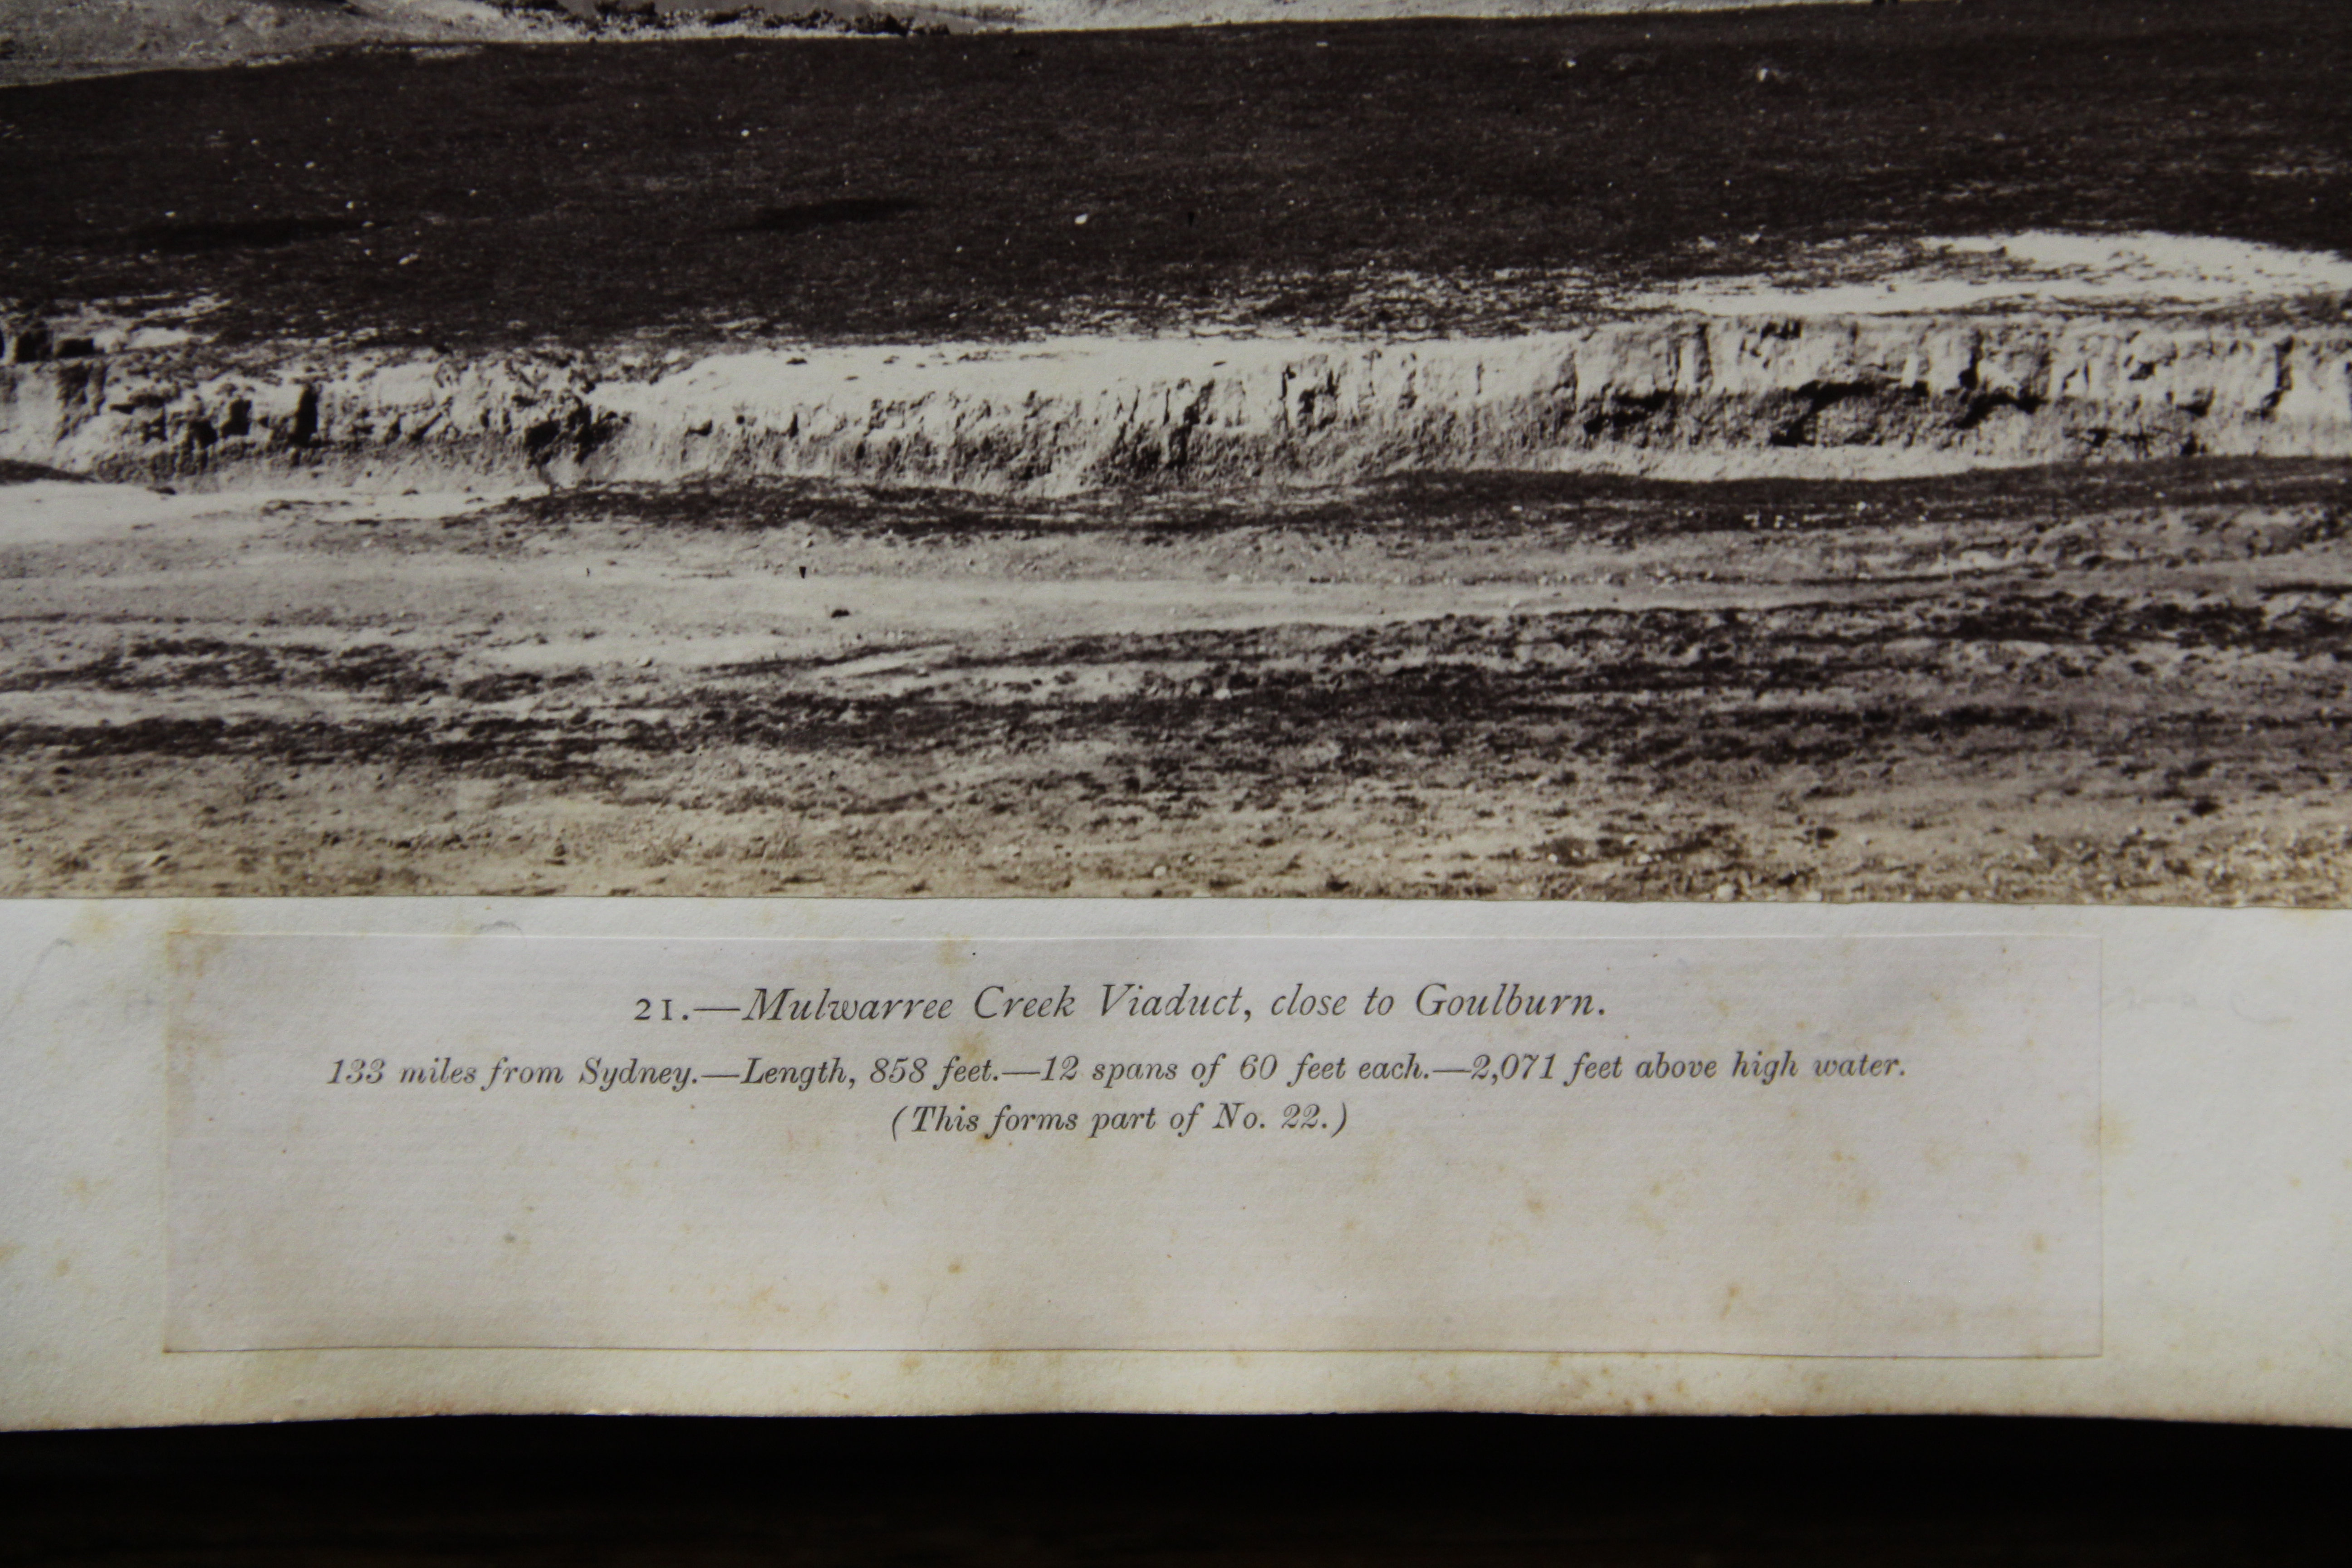 21.—Mulwarree Creek Viaduct, close to Goulburn.
133 miles from Sydney.—Length, 858 feet.—12 spans of 60 feet each.—2,071 feet above high water.
(This forms part of No. 22.)